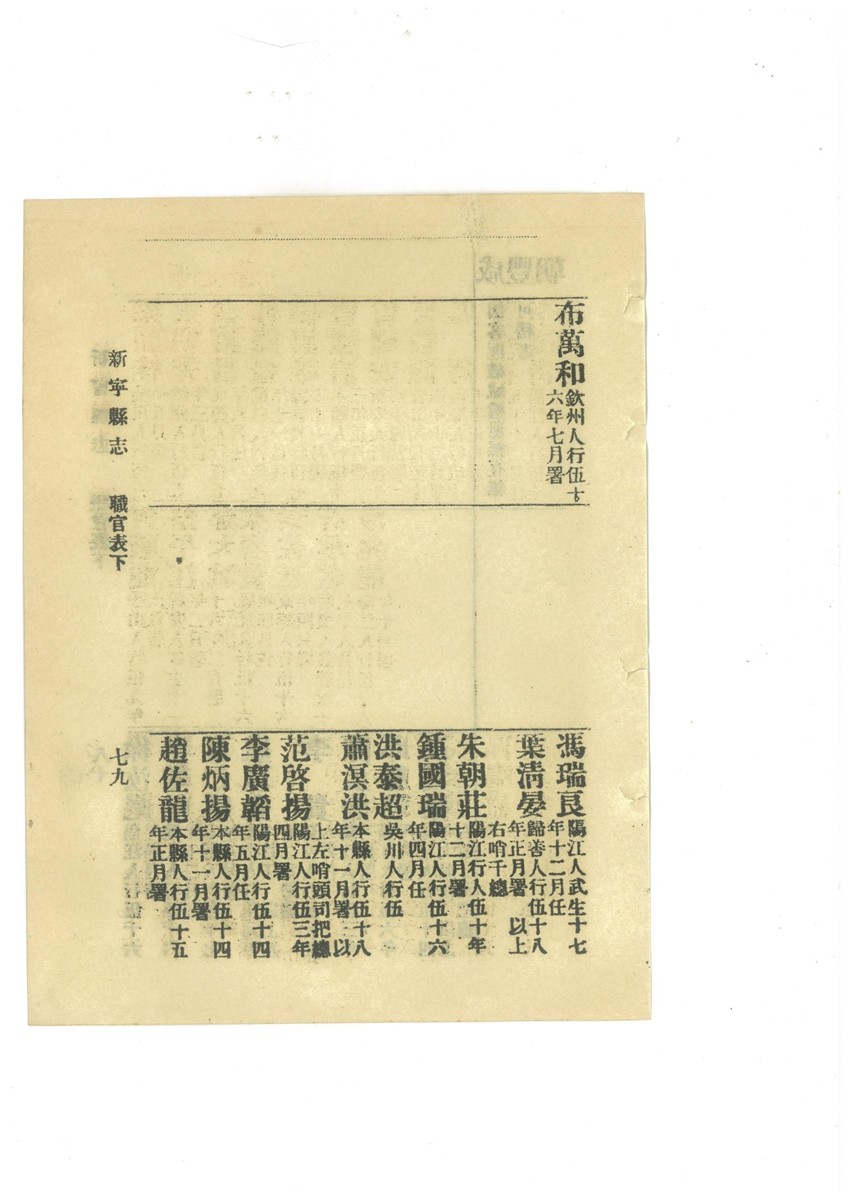 布萬和 欽州人行伍十
六年七月署
馮瑞良 陽江人武生十七
年十二月任
葉淸晏 歸善人行伍十八
年正月署 以上
右哨千總
朱朝莊 陽江行人伍十年
十二月署
鍾國瑞 陽江人行伍十六
年四月任
洪泰超 吳川人行伍
蕭溟洪 本縣人行伍十八
年十一月署 以
上左哨頭司把總
范啓揚 陽江人行伍三年
四月署
李廣韜 陽江人行伍十四
年五月任
陳炳揚 本縣人行伍十四
年十一月署
趙佐龍 本縣人行伍十五
年正月署
新寜縣志 職官表下 七九